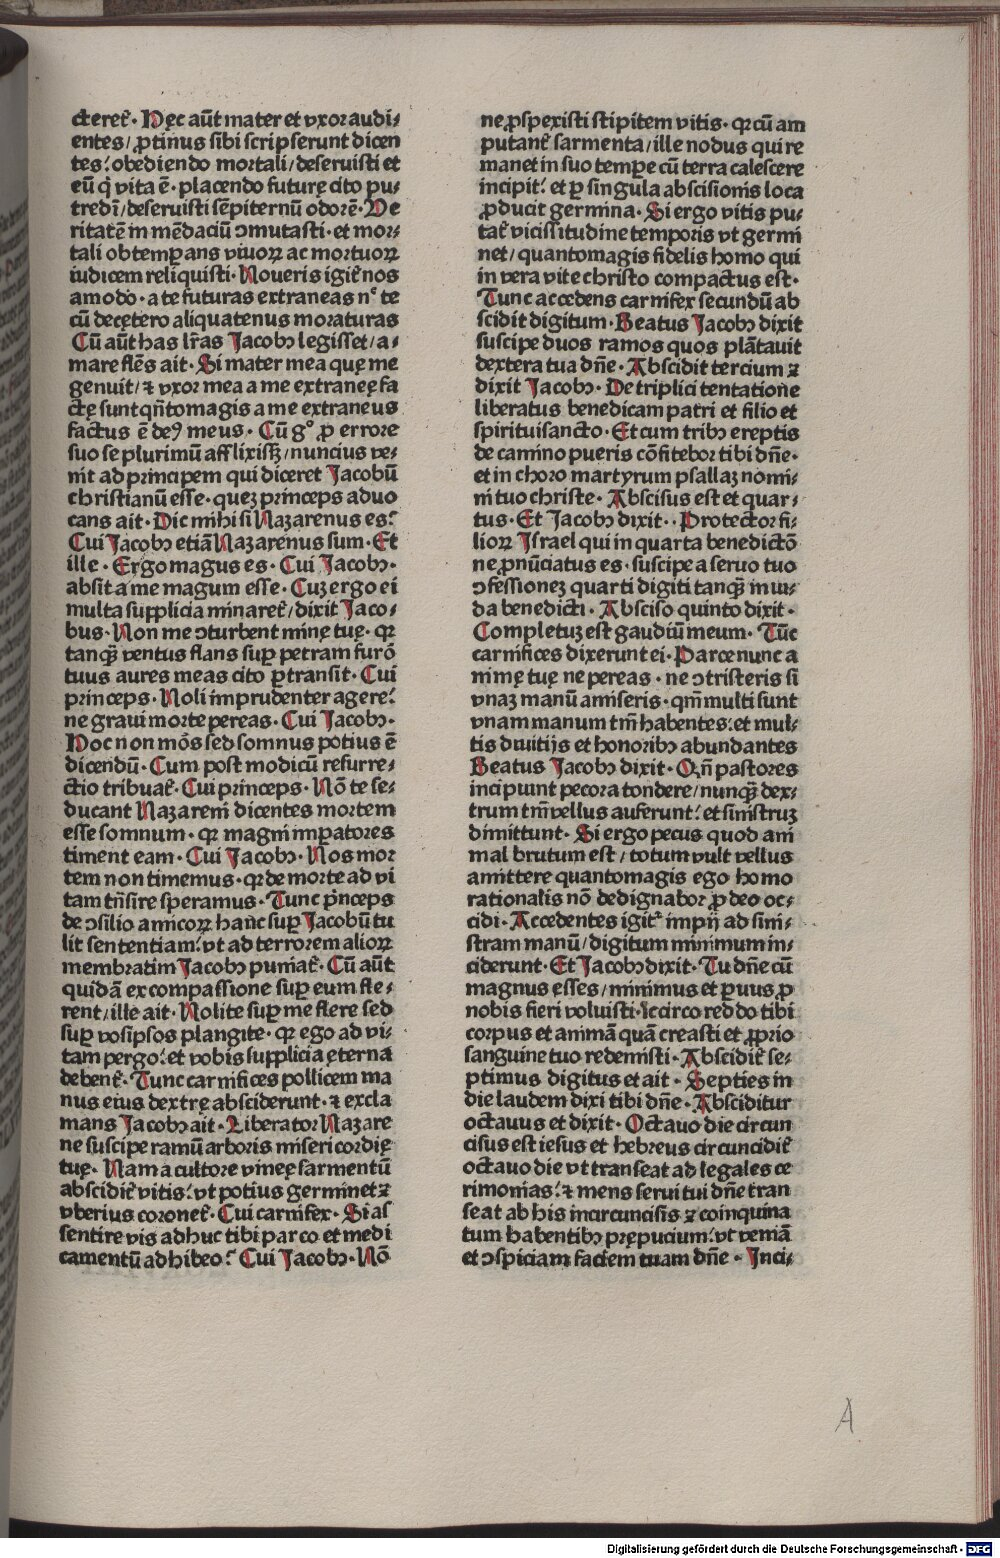 cteret̄. Hęc aūt mater et vxor audi⸗
entes/ ꝓtinus sibi scripserunt dicen
tes: obediendo mortali/ deseruisti et
eū q̇ vita ē. placendo futurę cito pu⸗
tredī/ deseruisti sēpiternū odorē. De
ritatē in mēdaciū ꝯmutasti. et mor⸗
tali obtemꝑans viuoꝝ ac mortuoꝝ
iudicem reliquisti. Noueris igit̄ nos
amodo. a te futuras extraneas nᶜ te
cū decętero aliquatenus moraturas
Cū aūt has lr̄as Jacobꝰ legisset/ a⸗
mare flēs ait. Si mater mea quę me
genuit/ ⁊ vxor mea a me extraneę fa
ctę sunt qn̄tomagis a me extraneus
factus ē deꝰ meus. Cū gᵒ ꝓ errore
suo se plurimū afflixissꝫ/ nuncius ve⸗
nit ad principem qui diceret Jacobū
christianū esse. quez princeps aduo
cans ait. Dic mihi si Nazarenus es:
Cui Jacobꝰ etiā Nazarenus sum. Et
ille. Ergo magus es. Cui Jacobꝰ.
absit a me magum esse. Cuz ergo ei
multa supplicia minaret̄/ dixit Jaco⸗
bus. Non me ꝯturbent minę tuę. qꝛ
tanqꝫ̄ ventus flans suꝑ petram furō
tuus aures meas cito ꝑtransit. Cui
princeps. Noli imprudenter agere:
ne graui morte pereas. Cui Jacobꝰ.
Hoc non mōs sed somnus potius ē
dicendū. Cum post modicū resurre⸗
ctio tribuat̄. Cui princeps. Nō te se⸗
ducant Nazareni dicentes mortem
esse somnum. qꝛ magni imꝑatores
timent eam. Cui Jacobꝰ. Nos mor
tem non timemus. qꝛ de morte ad vi
tam trn̄sire speramus. Tunc pn̄ceps
de ꝯsilio amicoꝝ hanc suꝑ Jacobū tu
lit sententiam: vt ad terrorem alioꝝ
membratim Jacobꝰ puniat̄. Cū aūt
quidā ex compassione suꝑ eum fle⸗
rent/ ille ait. Nolite suꝑ me flere sed
suꝑ vosipsos plangite. qꝛ ego ad vi⸗
tam pergo: et vobis supplicia ęterna
debent̄. Tunc carnifices pollicem ma
nus eius dextrę absciderunt. ⁊ excla
mans Jacobꝰ ait. Liberator Nazare
ne suscipe ramū arboris misericordię
tuę. Nam a cultore vineę sarmentū
abscidit̄ vitis: vt potius germinet ⁊
vberius coronet̄. Cui carnifex. Si as
sentire vis adhuc tibi parco et medi
camentū adhibeo: Cui Jacobꝰ. Nō
ne ꝓspexisti stipitem vitis. qꝛ cū am
putant̄ sarmenta/ ille nodus qui re
manet in suo temꝑe cū terra calescere
incipit: et ꝑ singula abscisionis loca
ꝓducit germina. Si ergo vitis pu⸗
tat̄ vicissitudine temporis vt germi
net/ quantomagis fidelis homo qui
in vera vite christo compactus est.
Tunc accedens carnifex secundū ab
scidit digitum. Beatus Jacobꝰ dixit
suscipe duos ramos quos plātauit
dextera tua dn̄e. Abscidit tercium ⁊
dixit Jacobꝰ. De triplici tentatione
liberatus benedicam patri et filio et
spirituisancto. Et cum tribꝰ ereptis
de camino pueris cōfitebor tibi dn̄e.
et in choro martyrum psallaꝫ nomi⸗
ni tuo christe. Abscisus est et quar⸗
tus. Et Jacobꝰ dixit.. Protector fi⸗
lioꝝ Israel qui in quarta benedictō
ne ꝓnūciatus es. suscipe a seruo tuo
ꝯfessionez quarti digiti tanqꝫ̄ in iu⸗
da benedicti. Absciso quinto dixit.
Completuz est gaudiū meum. Tūc
carnifices dixerunt ei. Parce nunc a
nimę tuę ne pereas. ne ꝯtristeris si
vnaꝫ manū amiseris. qm̄ multi sunt
vnam manum tm̄ habentes: et mul⸗
tis diuitijs et honoribꝰ abundantes
Beatus Jacobꝰ dixit. Qn̄ pastores
incipiunt pecora tondere/ nunqꝫ̄ dex⸗
trum tm̄ vellus auferunt: et sinistruꝫ
dimittunt. Si ergo pecus quod ani
mal brutum est/ totum vult vellus
amittere quantomagis ego homo
rationalis nō dedignabor ꝓ deo oc⸗
cidi. Accedentes igit̄ impij ad sini⸗
stram manū/ digitum minimum in⸗
ciderunt. Et Jacobꝰ dixit. Tu dn̄e cū
magnus esses/ minimus et ꝑuus ꝓ
nobis fieri voluisti. Iccirco reddo tibi
corpus et animā quā creasti et ꝓprio
sanguine tuo redemisti. Abscidit̄ se⸗
ptimus digitus et ait. Septies in
die laudem dixi tibi dn̄e. Absciditur
octauus et dixit. Octauo die circun
cisus est iesus et hebreus circuncidit̄
octauo die vt transeat ad legales ce
rimonias: ⁊ mens serui tui dn̄e tran
seat ab his incircuncisis ⁊ coinquina
tum habentibꝰ prępucium: vt veniā
et ꝯspiciam faciem tuam dn̄e. Inci⸗
A
Digitalisierung gefördert durch die Deutsche Forschungsgemeinschaft · DFG